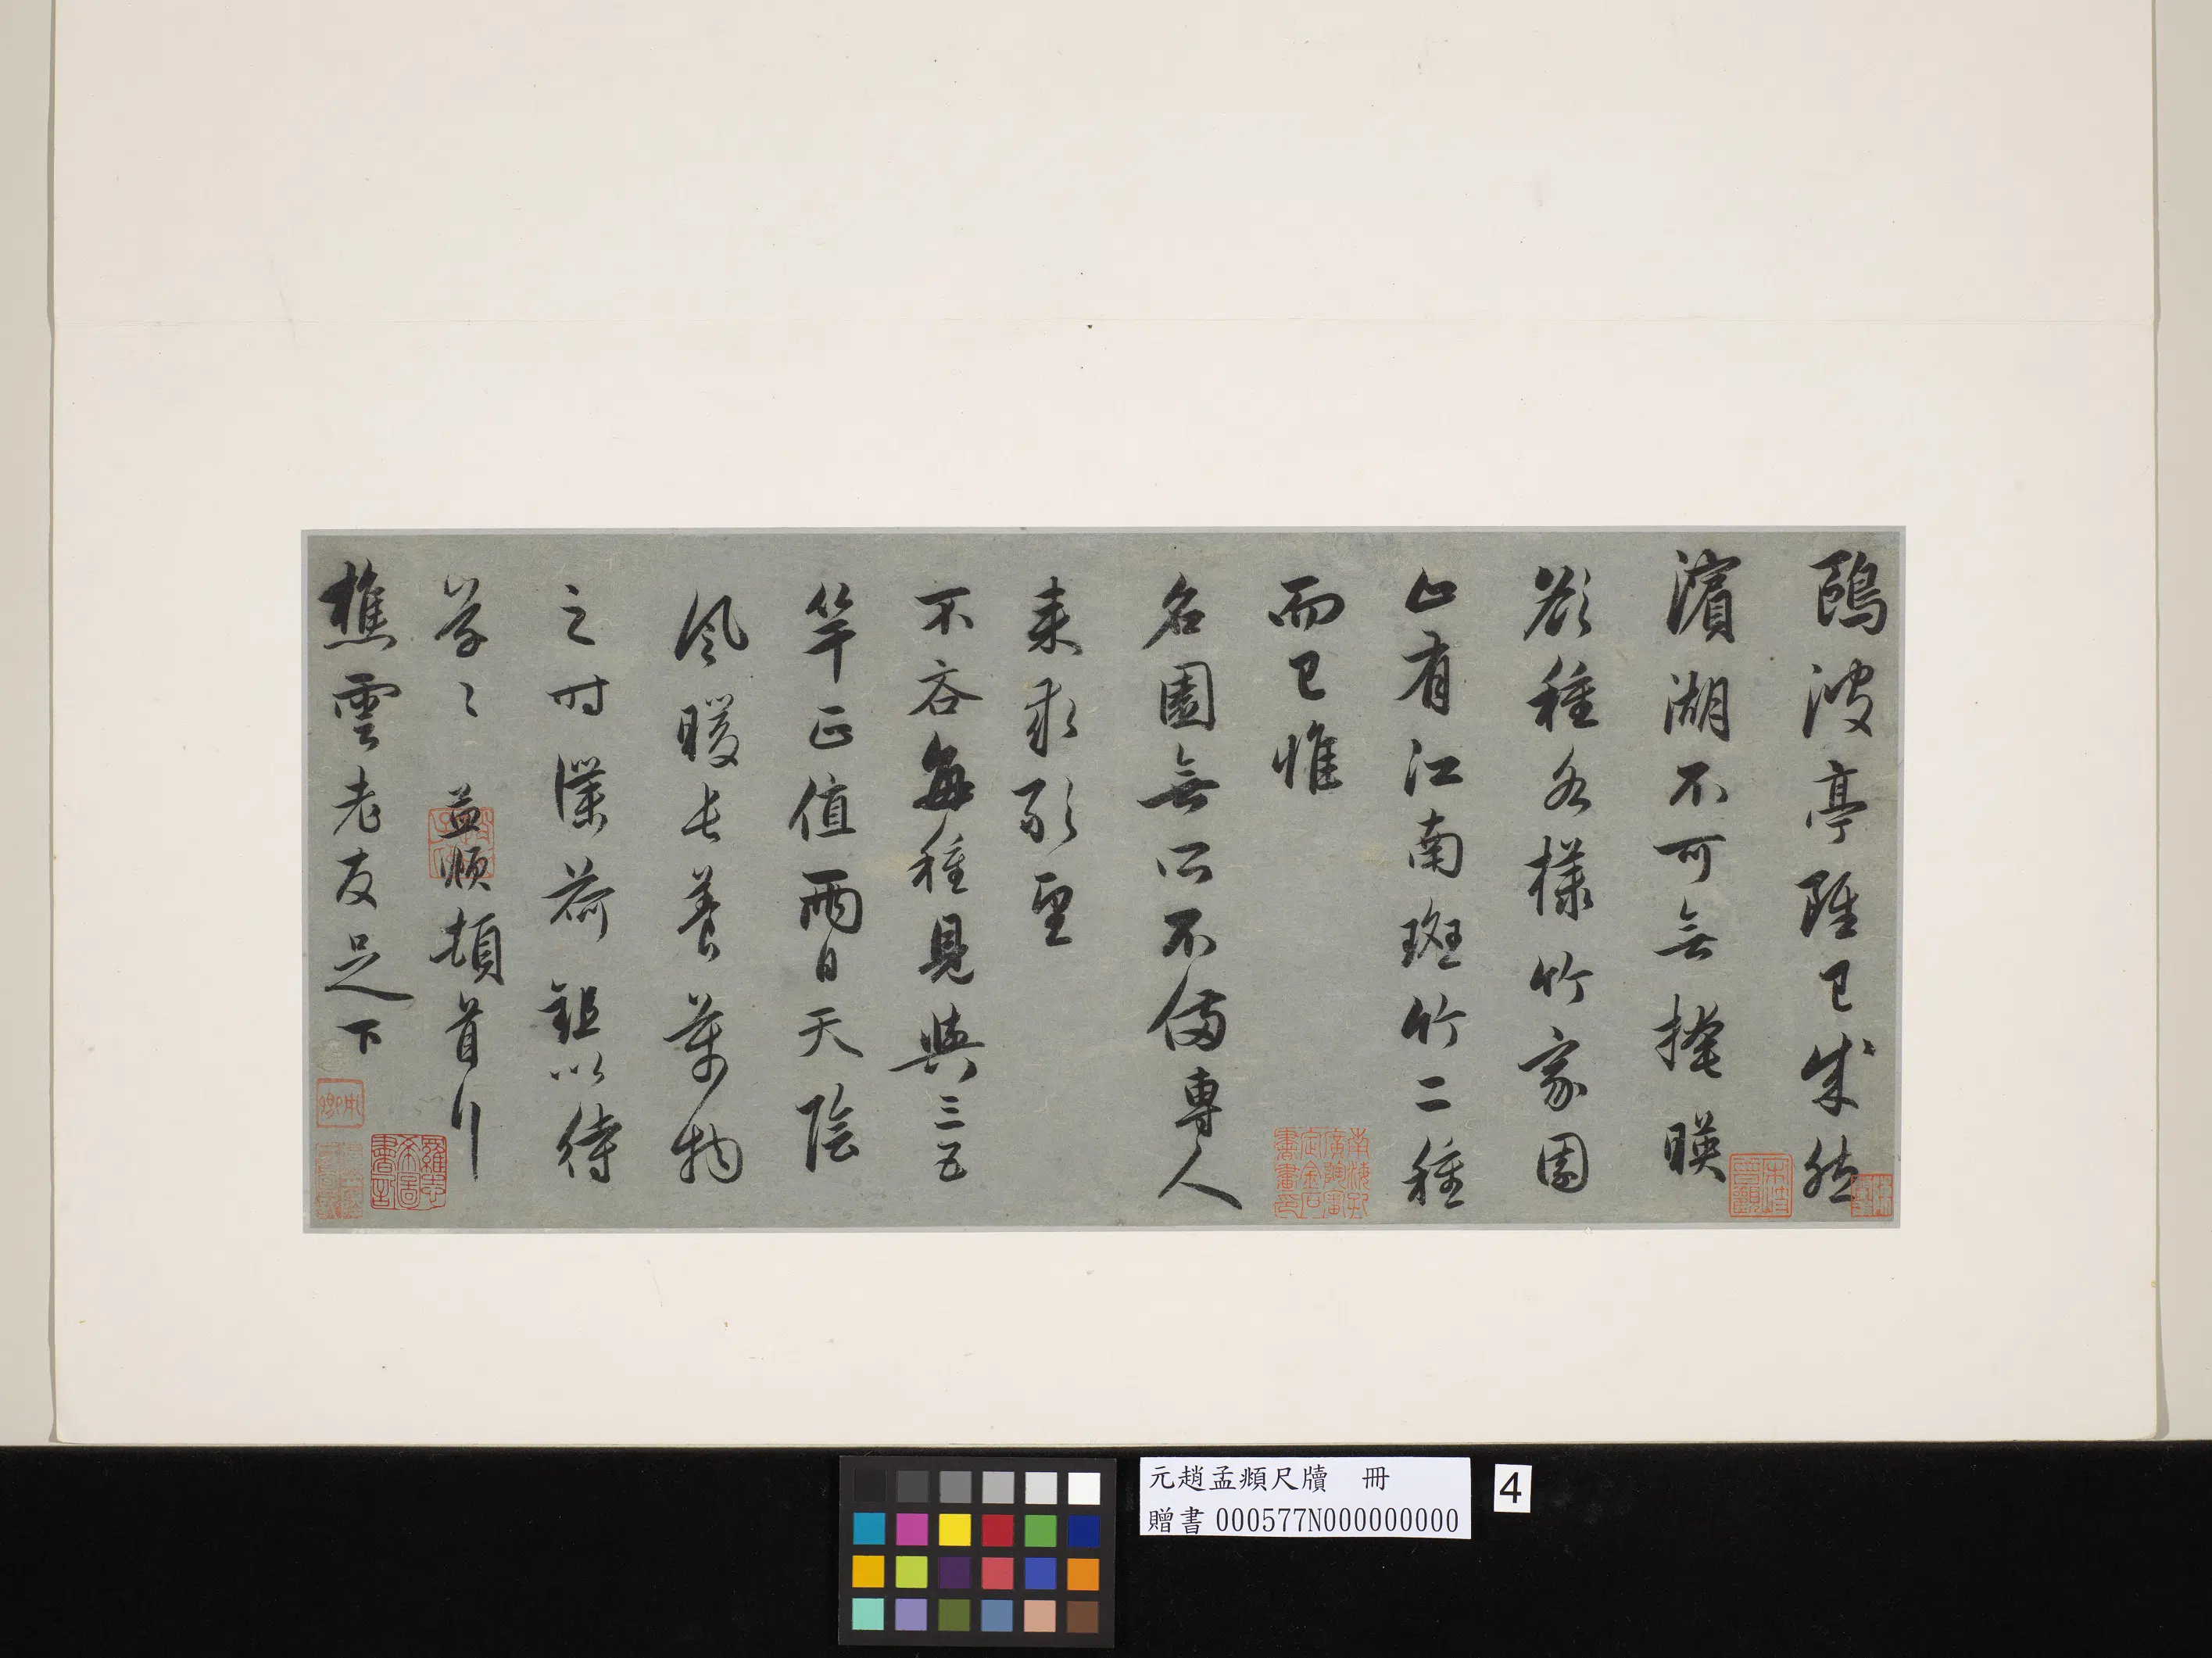 鷗波亭雖已成然
濱湖不可無掩暎
欲種各樣竹家園
止有江南斑竹二種
而已惟
名園無所不備專人
来求敢望
不吝每種見與三五
竿正值雨日天陰
風暖長養萬物
之時谨荷鉏以待
草〻 孟頫頓首
樵雲老友足下
元趙孟頫尺牘 冊
贈書 000577N000000000
4